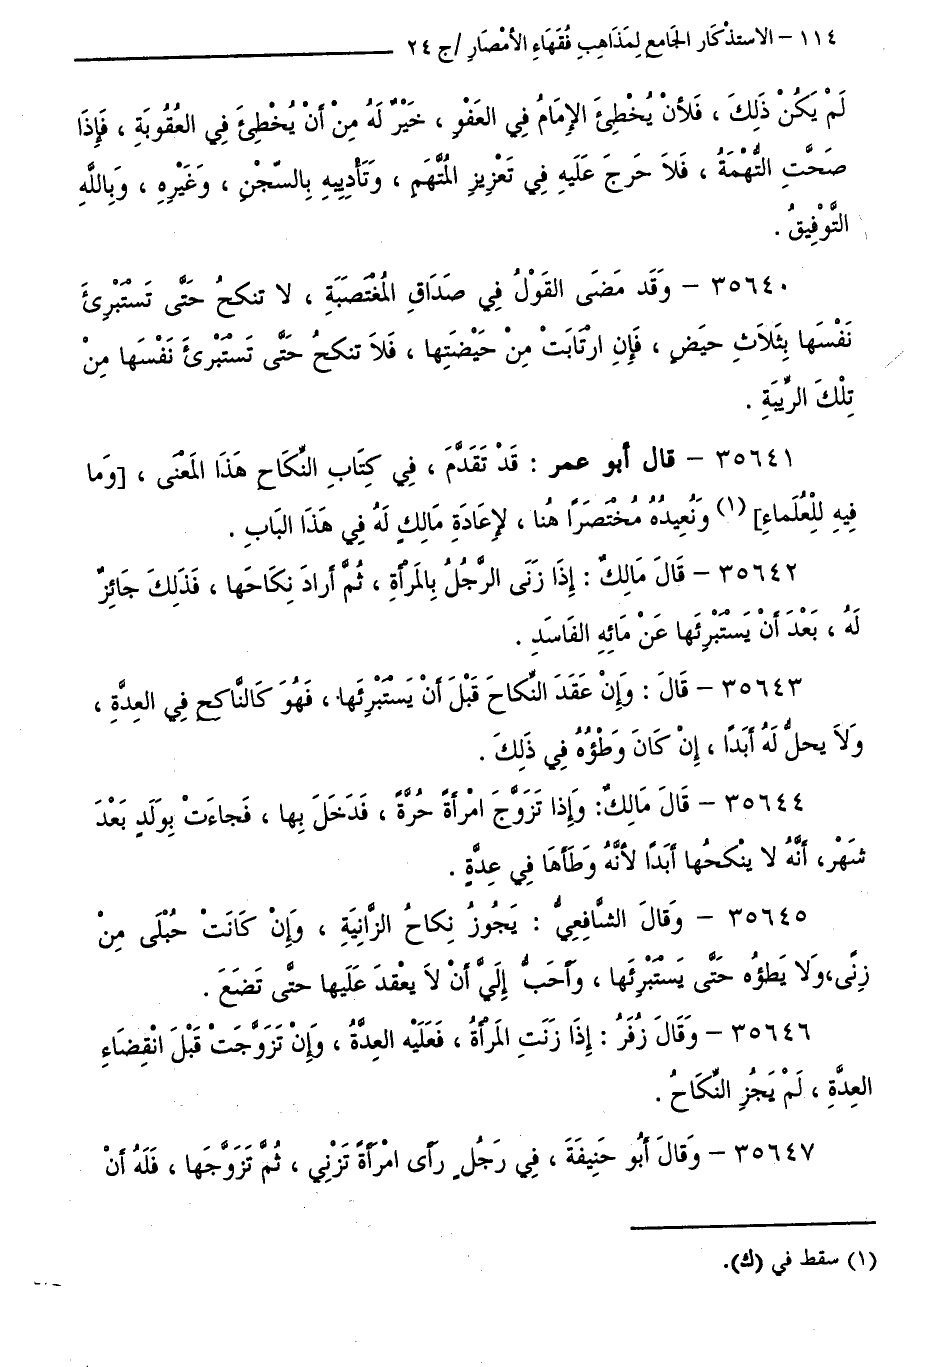 ١١٤ – الاستذْكَار الجَامع لِمَذَاهِبِ فُقَهَاءِ الأمْصَارِ / ج ٢٤
لَمْ يَكُنْ ذَلِكَ ، فَلأنْ يُخْطِئَ الإِمَامُ فِي العَفْوِ ، خَيْرٌ لَهُ مِنْ أَنْ يُخْطِئَ فِي العُقُوبَةِ ، فَإِذَا
صَحَّتِ التُّهْمَةُ ، فَلاَ حَرجَ عَلَيهِ فِي تَعْزِيزِ المُتَّهَمِ ، وَتَأْدِيبِهِ بِالسّجْنِ ، وَغَيْرِهِ ، وَبِاللَّهِ
التَّوْفِيقُ .
٣٥٦٤٠ – وَقَد مَضَى القَوْلُ فِي صَدَاقِ المُغْتَصبَةِ ، لا تنكحُ حَتَّى تَسْتَبْرِئَ
نَفْسَها بِثَلاَثِ حيَضٍ ، فَإِنِ ارْتَابَتْ مِنْ حَيْضَتِها ، فَلاَ تنكحُ حَتَّى تَسْتَبْرِئَ نَفْسَها مِنْ
تِلْكَ الرِّيبَةِ .
٣٥٦٤١ – قال أبو عمر : قَدْ تَقَدَّمَ ، فِي كِتَابِ النِّكَاحِ هَذَا المَعْنَى ، [وَما
فِيهِ لِلْعُلَماءِ] (١) وَنُعِيدُهُ مُخْتَصَرًا هُنا ، لإِعَادَةِ مَالِكٍ لَهُ فِي هَذَا البَابِ .
٣٥٦٤٢ – قَالَ مَالِكٌ : إِذَا زَنَى الرَّجُلُ بِالمَرأَةِ ، ثُمَّ أرادَ نِكَاحَها ، فَذَلِكَ جَائِزٌ
لَهُ ، بَعْدَ أَنْ يَسْتَبْرِئَها عَنْ مَائِهِ الفَاسَدِ .
٣٥٦٤٣ – قَالَ : وَإِنْ عَقَدَ النِّكَاحَ قَبْلَ أَنْ يَسْتَبْرِئَها ، فَهُوَ كَالنَّاكحِ فِي العِدَّةِ ،
وَلاَ يحلُّ لَهُ أبَدًا ، إِنْ كَانَ وَطْؤُهُ فِي ذَلِكَ .
٣٥٦٤٤ – قَالَ مَالِكٌ: وَإِذا تَزَوَّجَ امْرأَةً حُرَّةً ، فَدَخَلَ بِها ، فَجاءَتْ بِوَلَدٍ بَعْدَ
شَهْرٍ، أَنَّهُ لا ينْكحُها أبَدًا لأنَّهُ وَطَأَهَا فِي عِدَّةٍ .
٣٥٦٤٥ – وَقَالَ الشَّافِعِيُّ : يَجُوزُ نِكاحُ الزَّانِيَةِ ، وَإِنْ كَانَتْ حُبْلَى مِنْ
زِنًى،وَلا يَطؤُه حَتَّى يَسْتَبْرِئَها ، وَأَحَبُّ إِلَيَّ أَنْ لاَ يعْقدَ عَلَيها حتَّى تَضَعَ .
٣٥٦٤٦ – وَقَالَ زُفَرُ : إِذَا زَنَتِ المَرْأَةُ ، فَعَلَيْهِ العِدَّةُ ، وَإِنْ تَزَوَّجَتْ قَبْلَ انْقِضَاءِ
العِدَّةِ ، لَمْ يَجُزِ النِّكَاحُ .
٣٥٦٤٧ – وَقالَ أَبُو حَنِيفَةَ ، فِي رَجُلٍ رَأى امْرأَةً تَزْنِي ، ثُمَّ تَزَوَّجَها ، فَلَهُ أنْ
(١) سقط في (ك).